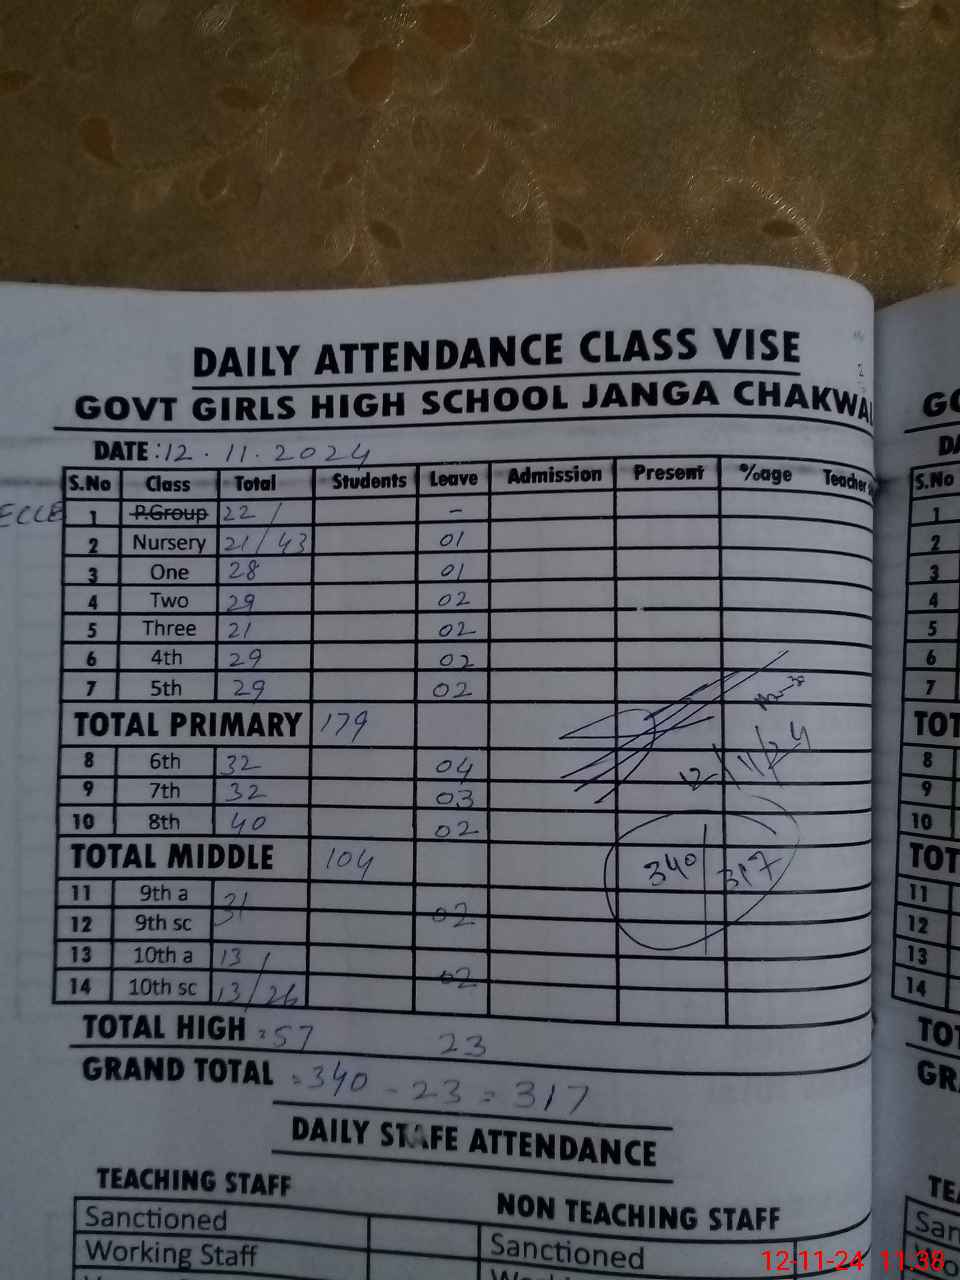 DAILY ATTENDANCE CLASS VISE
GOVT GIRLS HIGH SCHOOL JANGA CHAKWAL
DATE: 12.11.2024
S.No Class Total Students Leave Admission Present %age Teacher
ECCE 1 P.Group 22/ -
2 Nursery 21/43 01
3 One 28 01
4 Two 29 02
5 Three 21 02
6 4th 29 02
7 5th 29 02
TOTAL PRIMARY 179
12/11/24
8 6th 32 04
9 7th 32 03
10 8th 40 02
TOTAL MIDDLE 104
340 | 317
11 9th a 31
12 9th sc 02
13 10th a 13/
14 10th sc 13/26 02
TOTAL HIGH = 57 23
GRAND TOTAL = 340 - 23 = 317
DAILY STAFE ATTENDANCE
TEACHING STAFF
NON TEACHING STAFF
Sanctioned
Sanctioned
Working Staff
GO
DA
S.No
1
2
3
4
5
6
7
TOT
8
9
10
TOT
11
12
13
14
TO
GR
TE
San
12-11-24 11.38